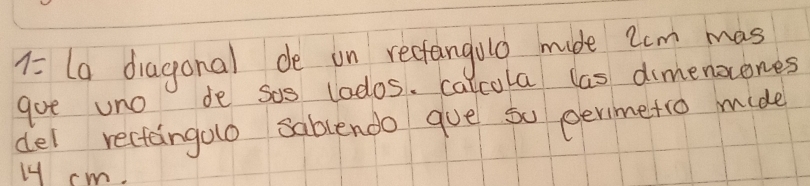 1= La diagonal de un rectangulo mide 2cm mas
que uno de sus lados. calcula las dimenciones
del rectángulo sabiendo que su perimetro mide
14 cm.